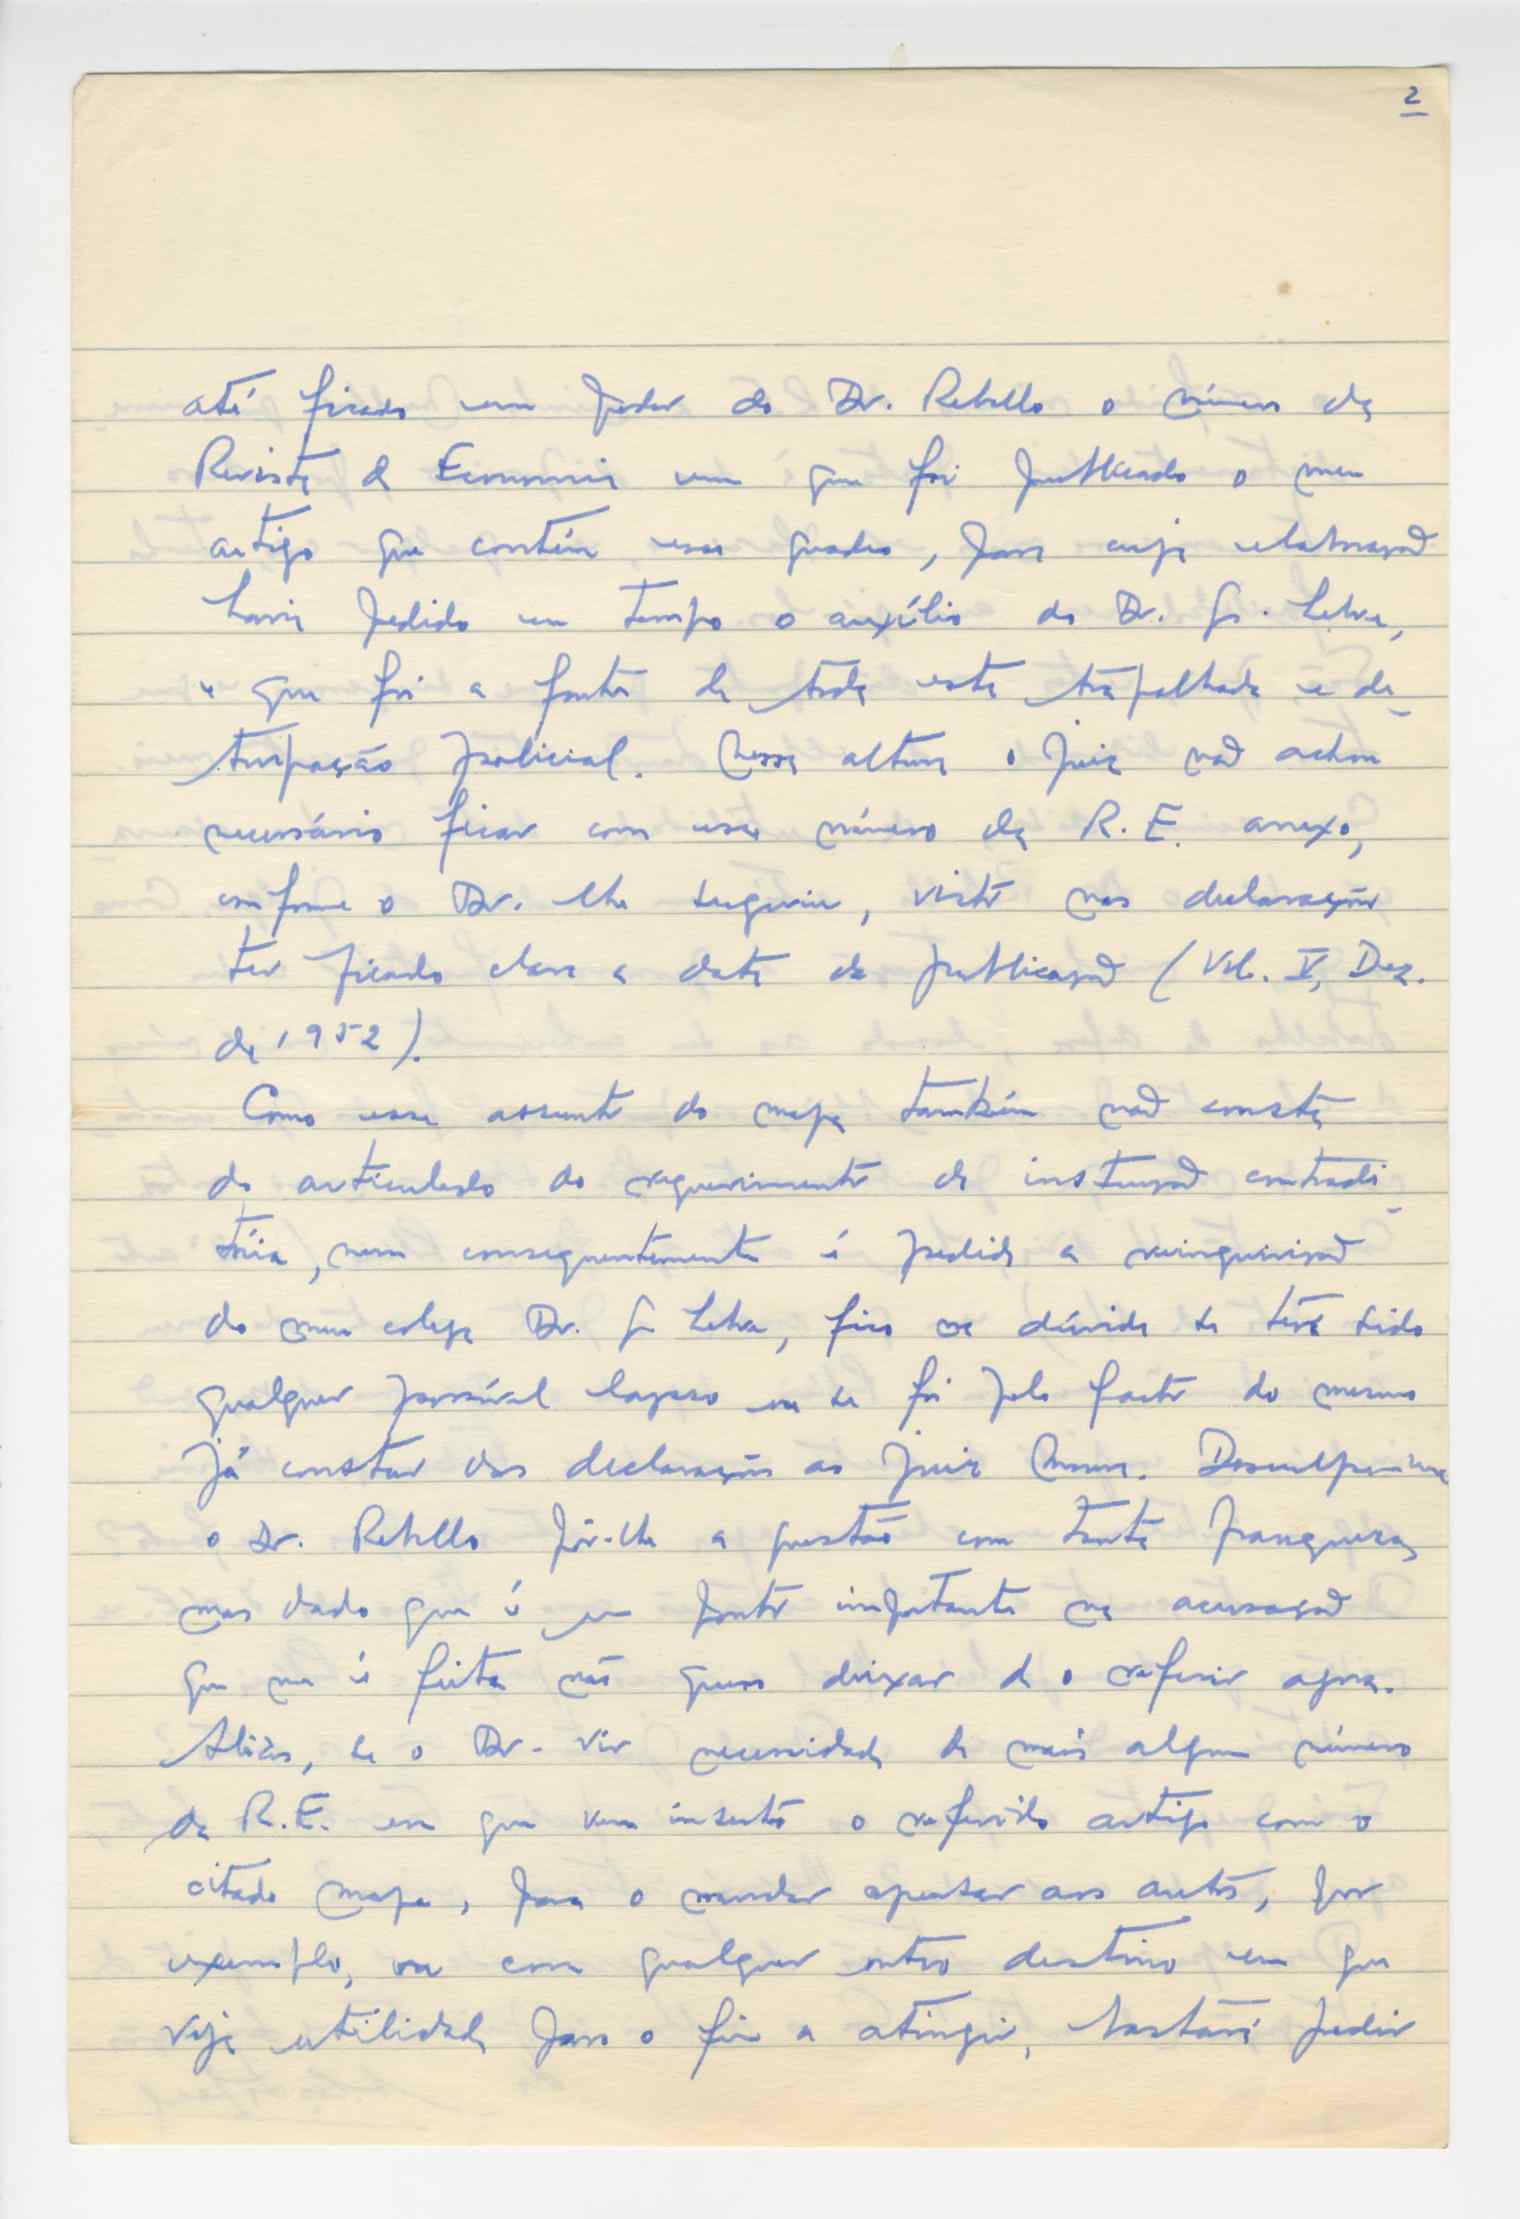 2
até ficado em poder do Dr. Rebello o número da
Revista de Economia em que foi publicado o meu
artigo que contém esse quadro, para cuja elaboração
havia pedido em tempo o auxílio do Dr.
e que foi a fonte de toda esta trapalhada e de-
turpação policial. Nessa altura o juiz não achou
necessário ficar com esse número da R.E. anexo,
conforme o Dr. lhe sugeriu, visto nas declarações
ter ficado clara a data da publicação (Vol. V, Dez.
de 1952).
Como esse assunto do mapa também não consta
do articulado do requerimento de instrução contradi-
tória, nem consequentemente é pedida a reinquirição
do meu colega Dr. fico na dúvida se terá sido
qualquer possível lapso ou se foi pelo facto do mesmo
já constar das declarações ao juiz Desculpar-me-á
o Dr. Rebello pôr-lhe a questão com tanta franqueza,
mas dado que é um ponto importante na acusação
que me é feita não quero deixar de o referir agora.
Aliás, se o Dr. vir necessidade de mais algum número
da R.E. em que vem inserto o referido artigo com o
citado mapa, para o mandar apensar aos autos, por
exemplo, ou com qualquer outro destino em que
veja utilidade para o fim a atingir, bastará pedir